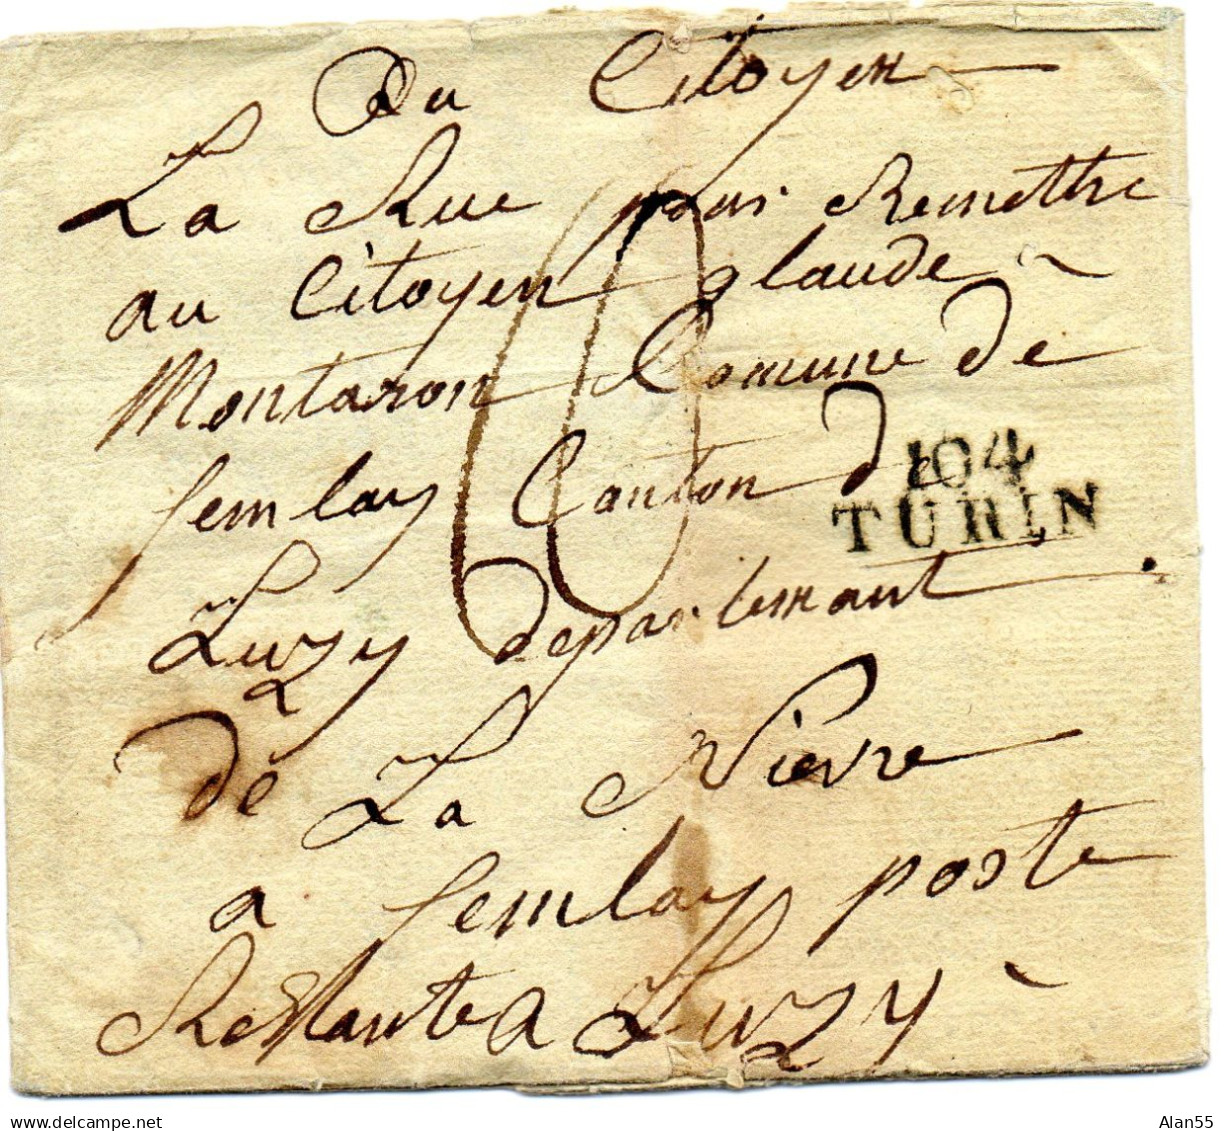 Au Citoyen
La Rue pour Remetthre
au Citoyen glaude
Montaron Comune de
semlay Canton de
104
TURIN
Luzy departemant
de La Nievre
a semlay poste
Restante a Luzy
www.delcampe.net
Alan55